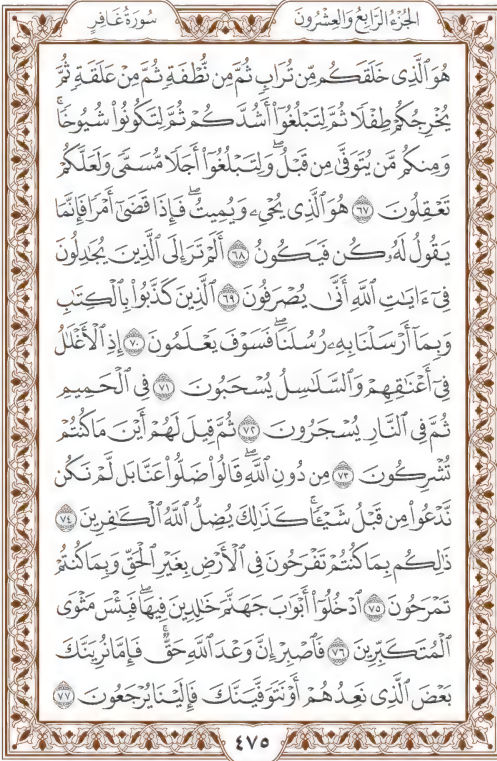 الجزء الرابع والعشرون
سورة غافر
هُوَ ٱلَّذِى خَلَقَكُم مِّن تُرَابٍ ثُمَّ مِن نُّطْفَةٍ ثُمَّ مِنْ عَلَقَةٍ ثُمَّ
يُخْرِجُكُمْ طِفْلًا ثُمَّ لِتَبْلُغُوٓا۟ أَشُدَّكُمْ ثُمَّ لِتَكُونُوا۟ شُيُوخًا ۚ
وَمِنكُم مَّن يُتَوَفَّىٰ مِن قَبْلُ ۖ وَلِتَبْلُغُوٓا۟ أَجَلًا مُّسَمًّى وَلَعَلَّكُمْ
تَعْقِلُونَ ٦٧ هُوَ ٱلَّذِى يُحْىِۦ وَيُمِيتُ ۖ فَإِذَا قَضَىٰٓ أَمْرًا فَإِنَّمَا
يَقُولُ لَهُۥ كُن فَيَكُونُ ٦٨ أَلَمْ تَرَ إِلَى ٱلَّذِينَ يُجَٰدِلُونَ
فِىٓ ءَايَٰتِ ٱللَّهِ أَنَّىٰ يُصْرَفُونَ ٦٩ ٱلَّذِينَ كَذَّبُوا۟ بِٱلْكِتَٰبِ
وَبِمَآ أَرْسَلْنَا بِهِۦ رُسُلَنَا ۖ فَسَوْفَ يَعْلَمُونَ ٧٠ إِذِ ٱلْأَغْلَٰلُ
فِىٓ أَعْنَٰقِهِمْ وَٱلسَّلَٰسِلُ يُسْحَبُونَ ٧١ فِى ٱلْحَمِيمِ
ثُمَّ فِى ٱلنَّارِ يُسْجَرُونَ ٧٢ ثُمَّ قِيلَ لَهُمْ أَيْنَ مَا كُنتُمْ
تُشْرِكُونَ ٧٣ مِن دُونِ ٱللَّهِ ۖ قَالُوا۟ ضَلُّوا۟ عَنَّا بَل لَّمْ نَكُن
نَّدْعُوا۟ مِن قَبْلُ شَيْـًٔا ۚ كَذَٰلِكَ يُضِلُّ ٱللَّهُ ٱلْكَٰفِرِينَ ٧٤
ذَٰلِكُم بِمَا كُنتُمْ تَفْرَحُونَ فِى ٱلْأَرْضِ بِغَيْرِ ٱلْحَقِّ وَبِمَا كُنتُمْ
تَمْرَحُونَ ٧٥ ٱدْخُلُوٓا۟ أَبْوَٰبَ جَهَنَّمَ خَٰلِدِينَ فِيهَا ۖ فَبِئْسَ مَثْوَى
ٱلْمُتَكَبِّرِينَ ٧٦ فَٱصْبِرْ إِنَّ وَعْدَ ٱللَّهِ حَقٌّ ۚ فَإِمَّا نُرِيَنَّكَ
بَعْضَ ٱلَّذِى نَعِدُهُمْ أَوْ نَتَوَفَّيَنَّكَ فَإِلَيْنَا يُرْجَعُونَ ٧٧
٤٧٥